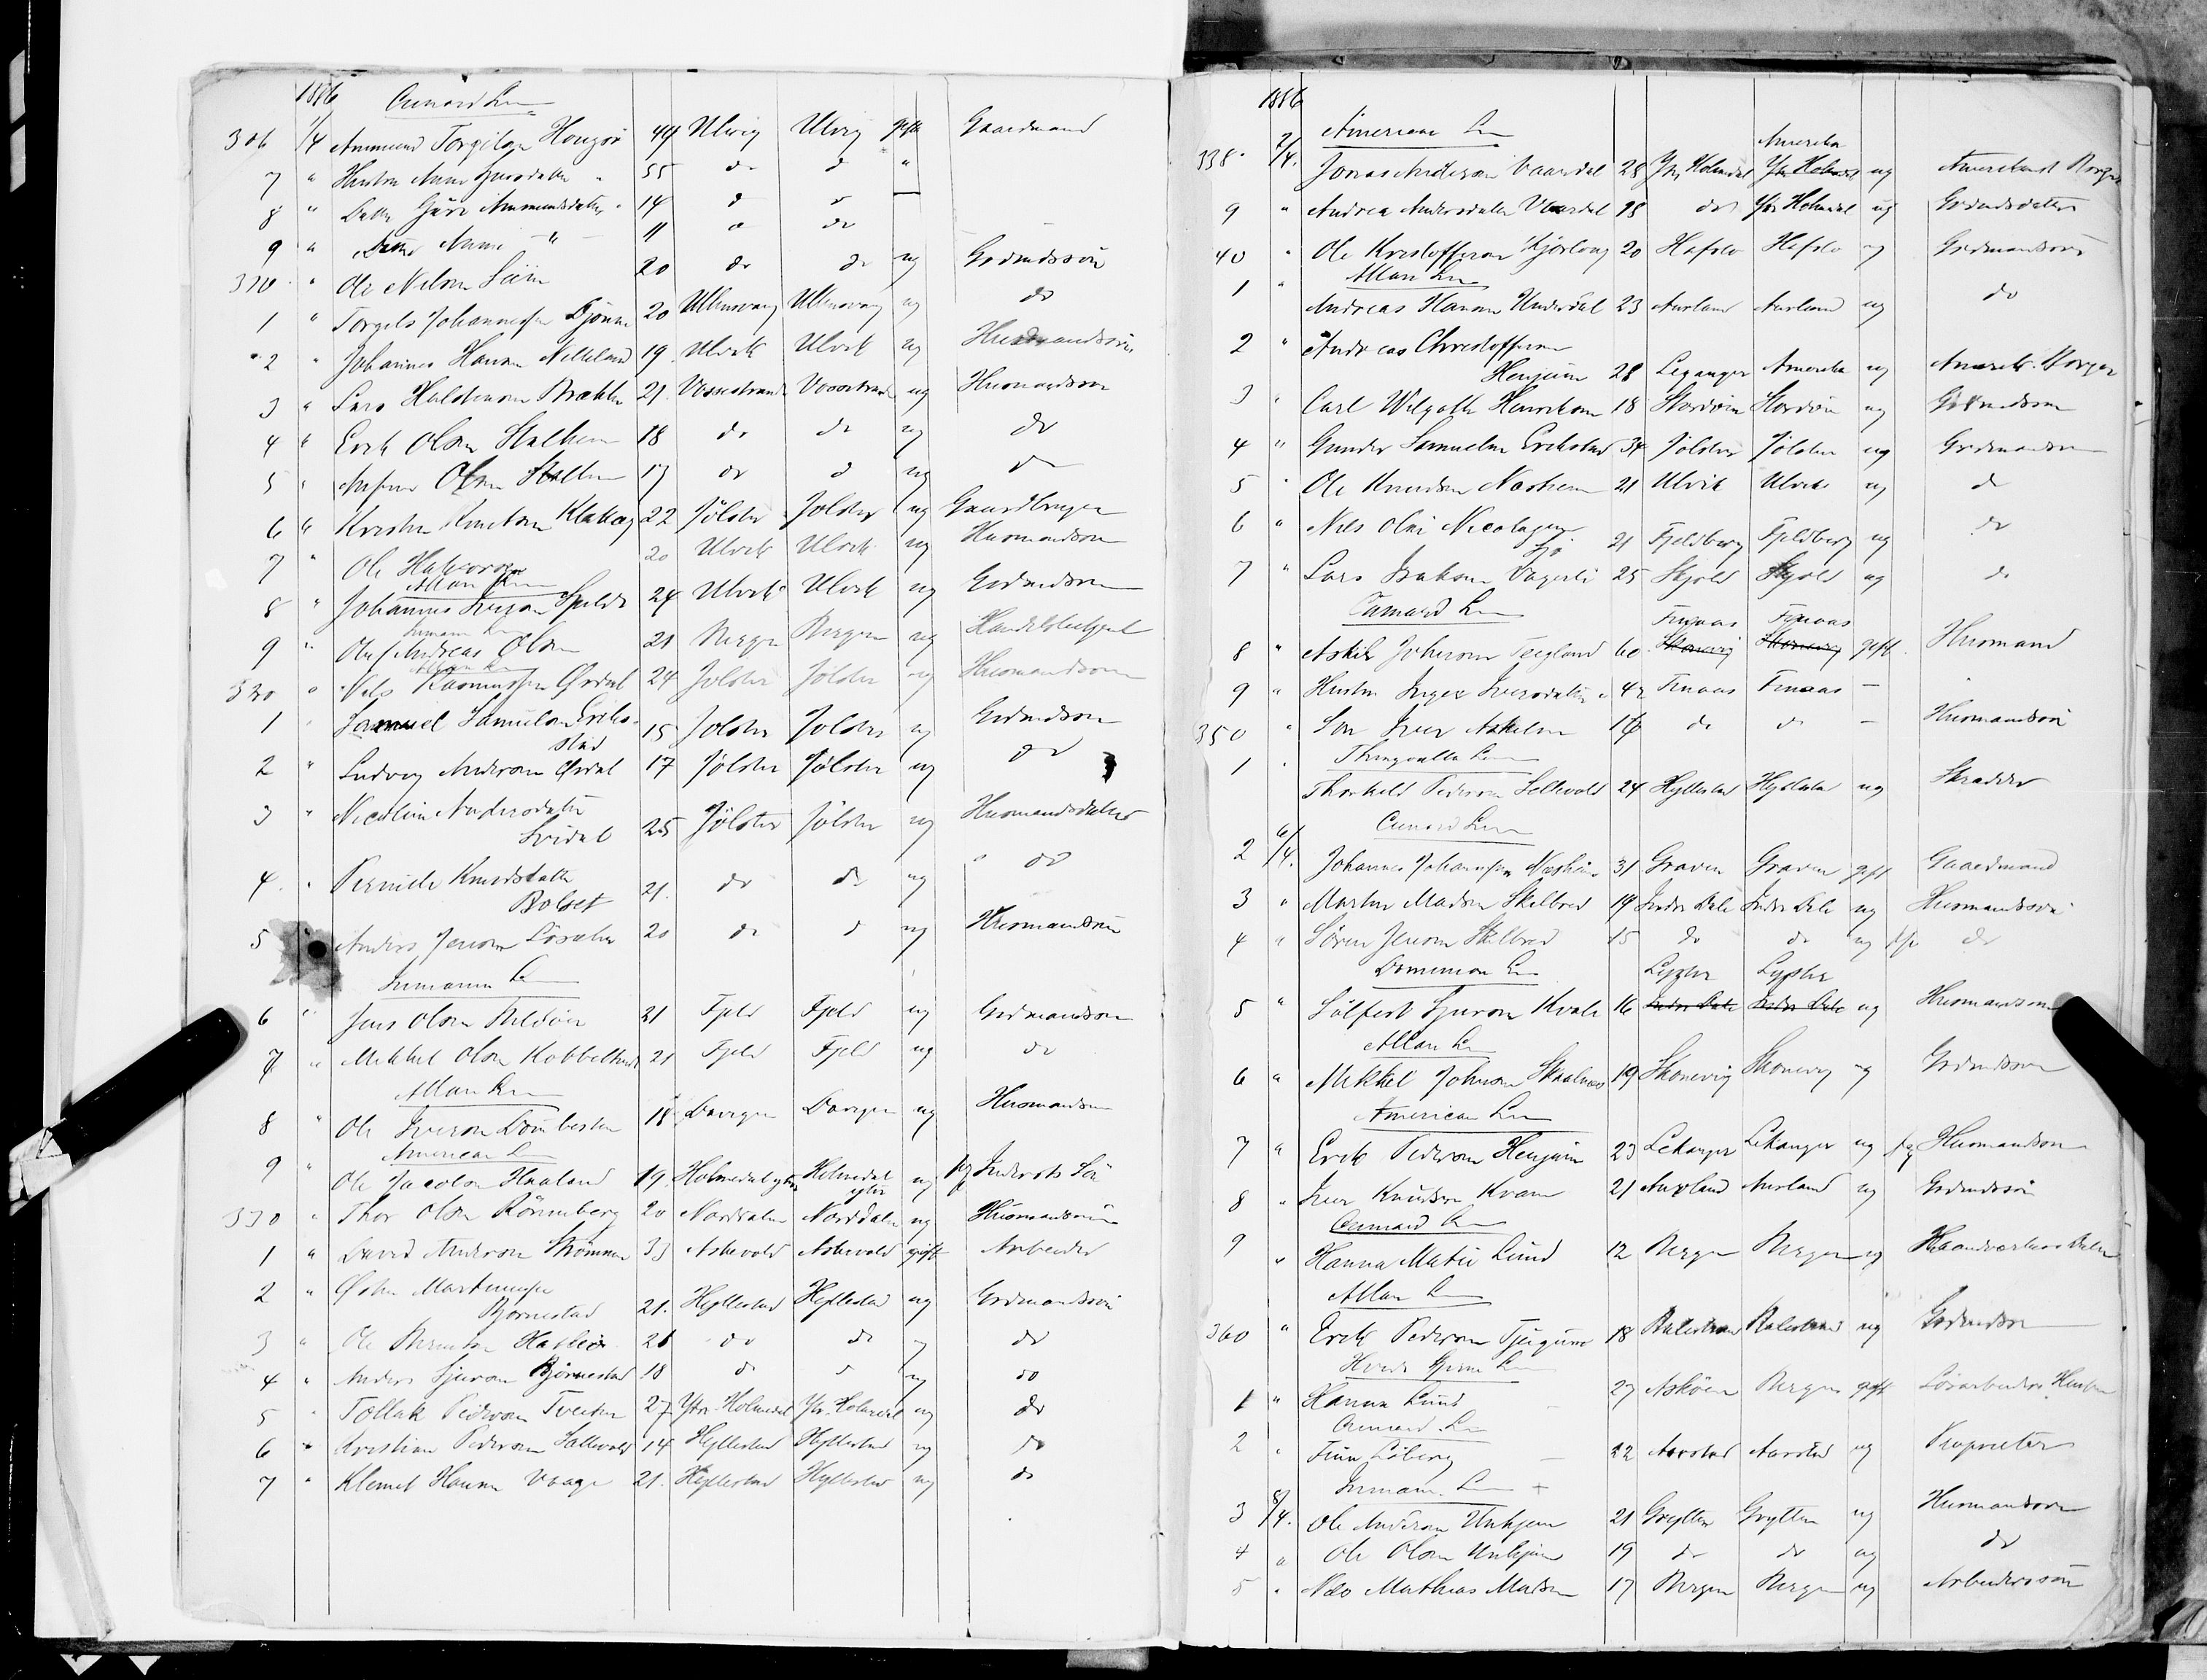 1886 Cunard Ln
306 1/4 Ammund Torgilsen 49 Ulvig Ulvig gift Gaardmand
7 " Hustru Anna 55 do d "
8 " Datter Ammundsdatter 14 d
9 " Anna — " — 11 do
310 " Ole Nilsen 20 do do ug Grdmdssön
1 " Torgels Johannessen Djönne 20 Ullensvang Ullensvang ug do
2 " Johannes Hansen 19 Ulvik Ulvik ug Husmandssön
3 " Lars 21 Vossestrand Vossestrand ug Husmandssön
4 " Erik Olsen Stalheim 18 do do ug do
5 " Olsen 17 do d ug do
6 " Kristen 22 Jölster Jölster ug Gaardbruger
7 " Ole Halvorsen 20 Ulvik Ulvik ug Husmandssön
Allan Ln
8 " Johannes Iversen 24 Ulvik Ulvik ug Grdmdssön
Inman Ln
9 " Andreas Olsen 21 Bergen Bergen ug
Allan Ln
320 " Nils Rasmussen Årdal 24 Jölster Jölster ug Husmandssön
1 " Samuel Samuelsen Eriks-
stad 15 Jölster Jölster ug Grdmdssön
2 " Ludvig Andersen Årdal 17 Jölster Jölster ug do
3 " Nicoline Andersdatter
25 Jölster Jölster ug Husmandsdatter
4 " Pernille Knudsdatter
Bolset 21. do do ug do
5 Anders Jensen 20 do d ug Husmandssön
Inman Ln
6 " Jens Olsen 21 Fjeld Fjeld ug Grdmandssön
7 " Mikkel Olsen 21 Fjeld Fjeld ug do
Allan Ln
8 " Ole Iversen Dombesten 18 Davigen Davigen ug Husmandssön
American Ln
9 " Ole Jacobsen Haaland 19. Holmedal ytre Holmedal
ytre ug
330 " Thor Olsen Rönneberg 20 Norddalen Norddalen ug Husmandssön
1 " David Andersen Strömmen 33 Askevold Askevold gift Arbeider
2 " Martinusen
Bjørnestad 21. Hyllestad Hyllestad ug Grdmandssön
3 " Ole 26 do do ug do
4 " Anders Sjursen Bjørnestad 18 d ug do
5 " Tollak Pedersen Tveiten 27 Ytr. Holmedal Ytr. Holmedal ug do
6 " Kristian Pedersen Sollevold 14 Hyllestad Hyllestad ug do
7 " Klemet Hansen Vaage 21. Hyllestad Hyllestad ug do
1886
American Ln
Amerika
338 2/4. Jonas Andersen Vaardal 28 Ytr Holmedal Ytr Holmedal ug Amerikansk Borger
9 " Andrea Andersdatter Vaardal 18 do Ytr Holmedal ug Grdmdsdatter
40 " Ole Kristoffersen Kjørlaug 20 Hafslo Hafslo ug Grdmandssön
Allan Ln
1 " Andreas Hansen Underdal 23 Aurland Aurland ug do
2 " Andreas Christoffersen
Henjum 28 Leganger Amerika ug Amerik. Borger
3 " Carl Henriksen 18 Stordöen Stordöen ug Grdmdssön
4 " Gunder Samuelsen Erikstad 34 Jölster Jölster ug Grdmandssön
5 " Ole Knudsen Næsheim 21 Ulvik Ulvik ug d
6 " Nils Olai Nicolaysen
21 Fjeldberg Fjeldberg ug do
7 " Lars Isaksen 25 Skjold Skjold ug do
Cunard Ln
Finaas Finaas
8 " Askil Johnsen Tægland 60 Skonevig Skonevig gift Husmand
9 " Hustru Inger Iversdatter " 42 Finaas Finaas —
350 " Sön Iver Askilsen 16 do do — Husmandssön
Thingvalla Ln
1 " Thorkild Pedersen Sollevold 24 Hyllestad Hyllestad ug Skrædder
Cunard Ln
2 6/4. Johannes Johannessen Næsheim 31 Graven Graven gift Gaardmand
3 " Martin Madsen Skilbred 19 Indre Dale Indre Dale ug Husmandssön
4 " Sören Jensen Skilbred 15 do do ug do
Dominion Ln
Lyster Lyster
5 " Sölfest Sjursen Kvale 16 Indre Dale Indre Dale ug Husmandssön
Allan Ln
6 " Mikkel Johnsen 19 Skonevig Skonevig ug Grdmdssön
American Ln
7 " Erik Pedersen Henjum 23 Lekanger Lekanger ug Husmandssön
8 " Iver Knudsen Kvam 21 Aurland Aurland ug Grdmdssön
Cunard Ln
9 " Hanna Matie Lund 12 Bergen Bergen ug
Allan Ln
360 " Erik Pedersen Tjugum 18 Balestrand Balestrand ug Grdmdssön
Hvide Stjerne Ln
1 " Hanna Lund 27 Askøen Bergen gift
Cunard Ln
2 " Finn Löberg 22 Aarstad Aarstad ug Proprietær
Inman Ln +
3 8/4. Ole Andersen Unhjem 21 Grytten Grytten ug Husmandssön
4 " Ole Olsen Unhjem 19 do do ug do
5 " Mathias Madsen 17 Bergen Bergen ug Arbeiderssön